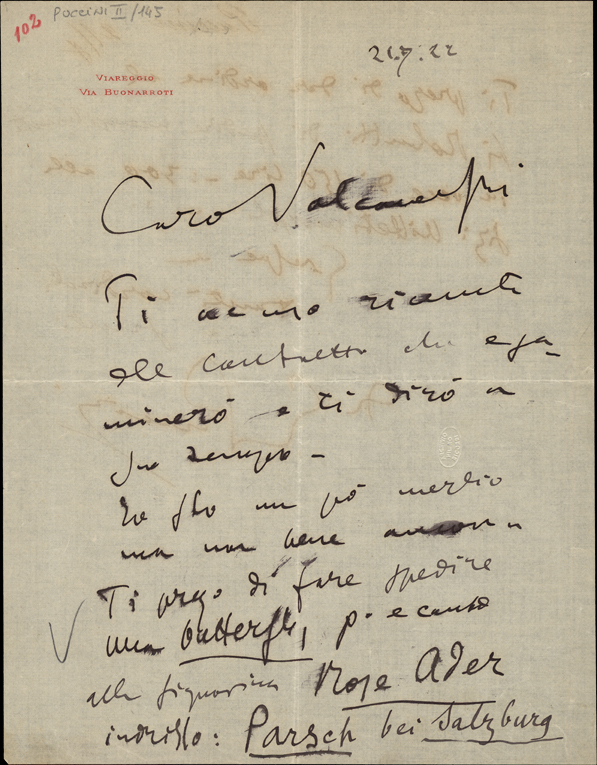 102
PUCCINI II/145
21.7.22
VIAREGGIO
VIA BUONARROTI
Caro Valcarenghi
Ti accuso ricevuta
del contratto che esa-
minerò e ti dirò a
suo tempo -
Io sto un pò meglio
ma non bene ancora
Ti prego di fare spedire
una Butterfly, p. e canto
alla signorina Rose Ader
indirizzo: Parsch bei Salzburg